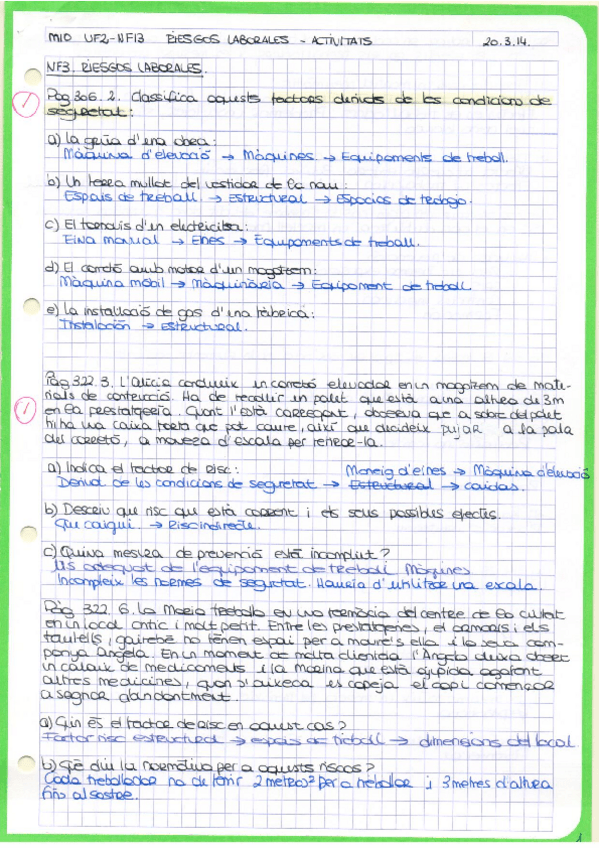 M10 UF2-NF13 RIESGOS LABORALES - ACTIVITATS 20.3.14.
NF3. RIESGOS LABORALES.
1
Pàg 306. 2. Classifica aquests factors derivats de les condicions de
seguretat:
a) La grúa d'una obra:
Màquina d'elevació → Màquines → Equipaments de treball.
b) Un terra mullat del vestidor de la nau:
Espais de treball → Estructural → Espacios de trabajo.
c) El tornavis d'un electricista:
Eina manual → Eines → Equipaments de treball.
d) El carretó amb motor d'un magatzem:
Màquina mòbil → Maquinària → Equipament de treball.
e) La instal·lació de gas d'una fàbrica:
Instalación → Estructural.
Pàg 322. 3. L'Alícia condueix un carretó elevador en un magatzem de mate-
rials de construcció. Ha de recollir un palet que està a una altura de 3m
1
en la prestatgeria. Quant l'està carregant, observa que a sobre del palet
hi ha una caixa que pot caure, així que decideix pujar a la pala
del carretó, a manera d'escala per retirar-la.
a) Indica el factor de risc: Maneig d'eines → Màquina d'elevació
Derivat de les condicions de seguretat → Estructural → caidas.
b) Descriu que risc que està corrent i els seus possibles efectes.
Que caigui. → Risc indirecte.
c) Quina mesura de prevenció està incomplint?
Us adequat de l'equipament de treball. Màquines
Incompleix les normes de seguretat. Hauria d'utilitzar una escala.
Pàg 322. 6. La Maria treballa en una farmàcia del centre de la ciutat
en un local antic i molt petit. Entre les prestatgeries, el armaris i els
taulells, gairebé no tenen espai per a moure's ella i la seva com-
panya Àngela. En un moment de molta clientela l'Àngela deixa obert
un calaix de medicaments i la Marina que està ajupida agafant
altres medicines, quan s'aixeca es copeja el cap i començar
a sagnar abundantment.
a) Quin és el factor de risc en aquest cas?
Factor risc estructural → espais de treball → dimensions del local
b) Què diu la normativa per a aquests riscos?
Cada treballador ha de tenir 2 metros² per a treballar i 3 metres d'altura
fins al sostre.
1